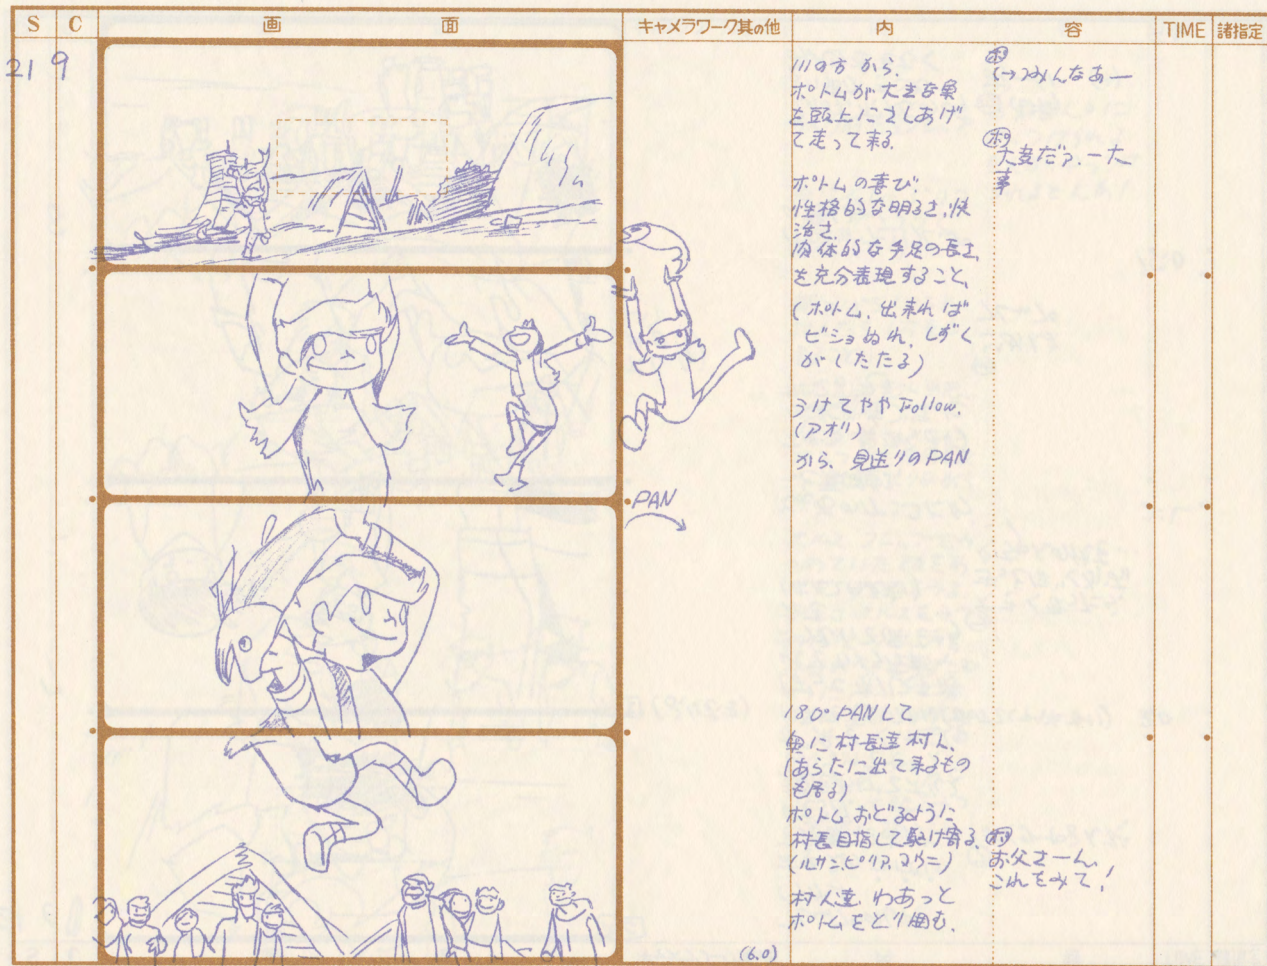 S C 画面 キャメラワーク其の他 内容 TIME 諸指定
21 9
川の方から、
ポトムが大きな魚
を頭上にさしあげ
て走って来る。
ポトムの喜び、
性格的な明るさ、快
活さ、
肉体的な手足の長さ、
を充分表現すること、
(ポトム、出来れば
ビショぬれ、しずく
がしたたる)
うけてやや Follow.
(アオリ)
から、見送りのPAN
ポ
みんなあー
大変だァ、ー大
事
PAN
180° PANして
奥に村長達村人、
(あらたに出て来るもの
も居る)
ポトムおどるように
村長目指して駆け寄る、
(ルサン、ピリア、
村人達、わあっと
ポトムをとり囲む、
お父さーん、
これをみて!
(6.0)